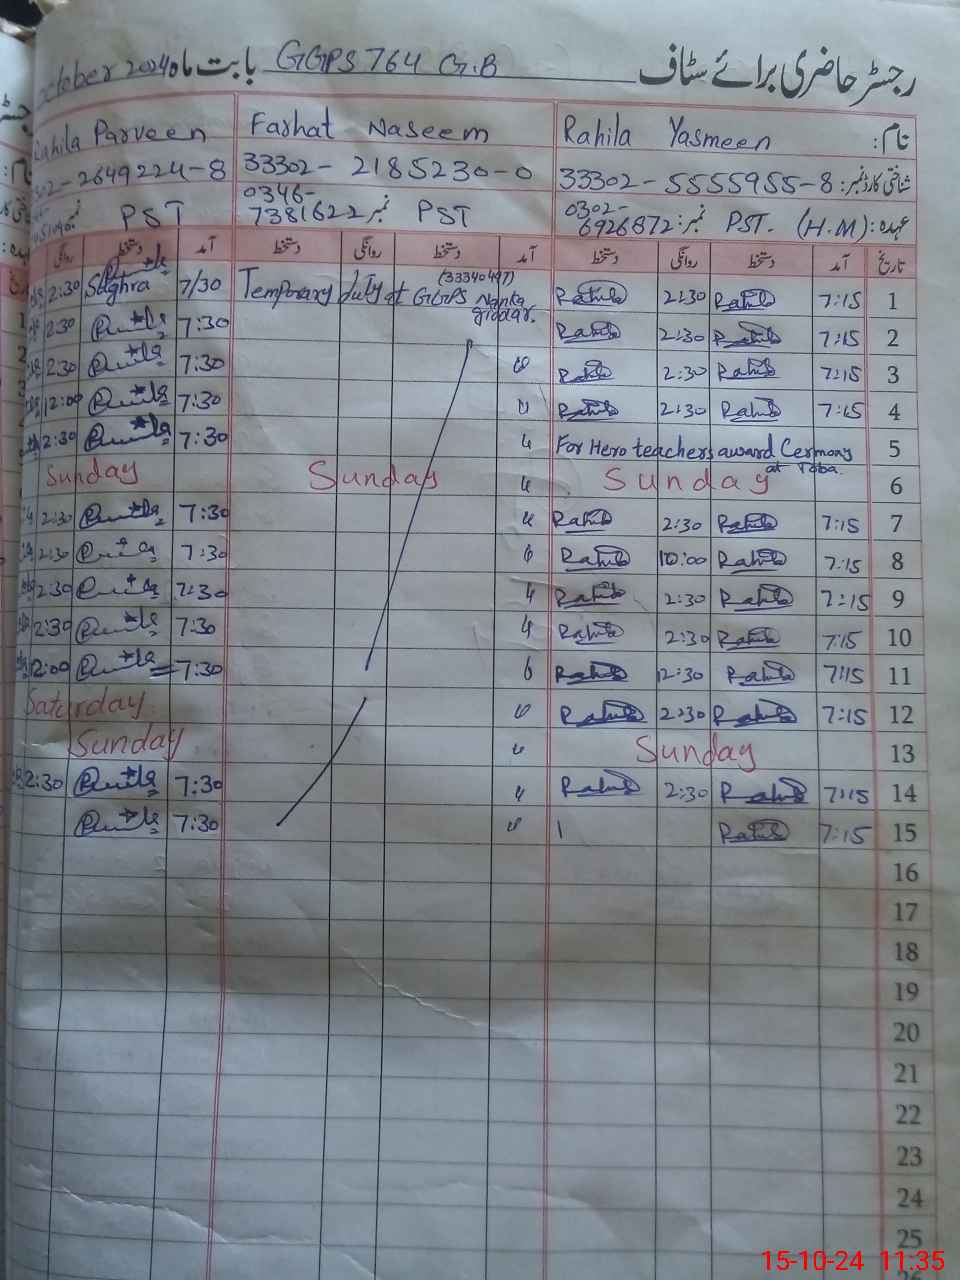 رجسٹر حاضری برائے سٹاف GGPS 764 G.B بابت ماہ October 2024
نام: Rahila Yasmeen Farhat Naseem Rahila Parveen
شناختی کارڈ نمبر: 33302-5555955-8 33302-2185230-0 2649224-8
عہدہ: PST. (H.M) نمبر: 0302-6926872 PST نمبر 0346-7381622 PST
تاریخ آمد دستخط روانگی دستخط آمد دستخط روانگی دستخط آمد دستخط روانگی
1 7:15 Rahila 2:30 Rahila Temporary duty at GGPS Nanka giddar. (33340497) 7/30 Sughra 2:30
2 7:15 Rahila 2:30 Rahila 7:30 2:30
3 7:15 Rahila 2:30 Rahila 〃 7:30 2:30
4 7:15 Rahila 2:30 Rahila 〃 7:30 12:00
5 For Hero teachers award Cermony at Toba. 〃 7:30 2:30
6 Sunday 〃 Sunday Sunday
7 7:15 Rahila 2:30 Rahila 〃 7:30 2:30
8 7:15 Rahila 10:00 Rahila 〃 7:30 2:30
9 7:15 Rahila 2:30 Rahila 〃 7:30 2:30
10 7:15 Rahila 2:30 Rahila 〃 7:30 2:30
11 7:15 Rahila 12:30 Rahila 〃 7:30 12:00
12 7:15 Rahila 2:30 Rahila 〃 Saturday
13 Sunday 〃 Sunday
14 7:15 Rahila 2:30 Rahila 〃 7:30 2:30
15 7:15 Rahila 〃 7:30
16
17
18
19
20
21
22
23
24
25
26
15-10-24 11:35